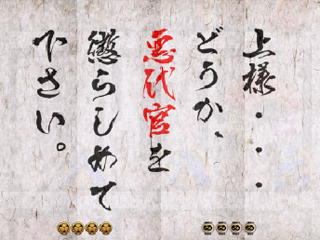 上様・・・
どうか、
悪代官を
懲らしめて
下さい。